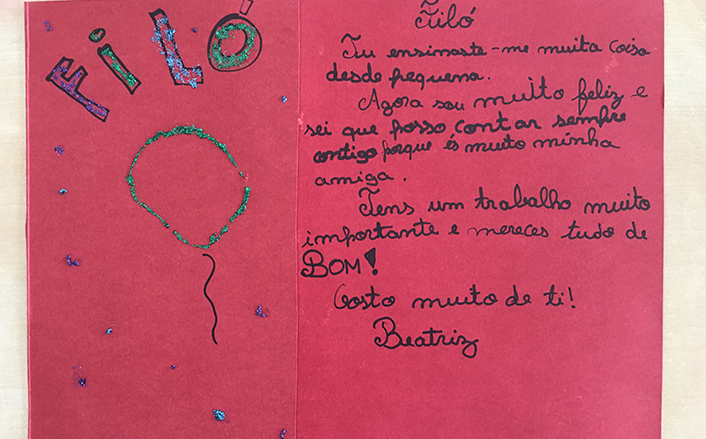 Filó
Filó
Tu ensinaste-me muita coisa
desde pequena.
Agora sou muito feliz e
sei que posso contar sempre
contigo porque és muito minha
amiga.
Tens um trabalho muito
importante e mereces tudo de
BOM!
Gosto muito de ti!
Beatriz